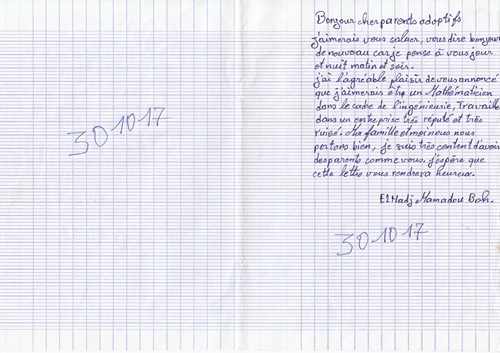 30 10 17
Bonjour chers parents adoptifs
j'aimerais vous saluer, vous dire bonjour
de nouveau car je pense à vous jour
et nuit matin et soir.
j'ai l'agréable plaisir de vous annoncé
que j'aimerais être un Mathématicien
dans le cadre de l'ingénieurie, Travaille
dans un entreprise très réputé et très
rusé. Ma famille et moi nous nous
portons bien, je suis très content d'avoir
des parents comme vous. j'éspère que
cette lettre vous rendrera heureux.
ElHadj Mamadou Bah.
30 10 17